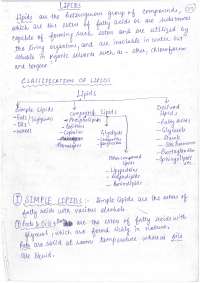 LIPIDS
Lipids are the heterogenous group of compounds,
which are the esters of fatty acids or are substances
capable of forming such esters and are utilised by
the living organism, and are insoluble in water but
soluble in organic solvents such as - ether, chloroform
and benzene
CLASSIFICATION OF LIPIDS
Lipids
Simple Lipids
- Fats
- Oils
- waxes
Compound Lipids
- Phospholipids
- Lecithin
- Cephalin
Glycolipids
Other compound
lipids
- Lipoproteins
- Sulpholipids
- Aminolipids
Derived
lipids
- Fatty Acids
- Glycerols
I SIMPLE LIPIDS :- Simple lipids are the esters of
fatty acids with various alcohols
① Fats & Oils :- are the esters of fatty acids with
glycerol, which are found widely in nature.
Fats are solid at room temperature whereas oils
are liquid.